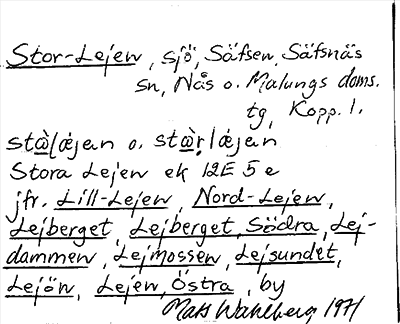 Stor-Lejen, sjö, Säfsen, Säfsnäs
sn, Nås o. Malungs doms.
tg, Kopp. l.
stàlǽjan o. stàrlǽjan
Stora Lejen ek 12E 5e
jfr. Lill-Lejen, Nord-Lejen,
Lejberget, Lejberget, Södra, Lej-
dammen, Lejmossen, Lejsundet,
Lejön, Lejen, Östra, by
Mats Wahlberg 1971